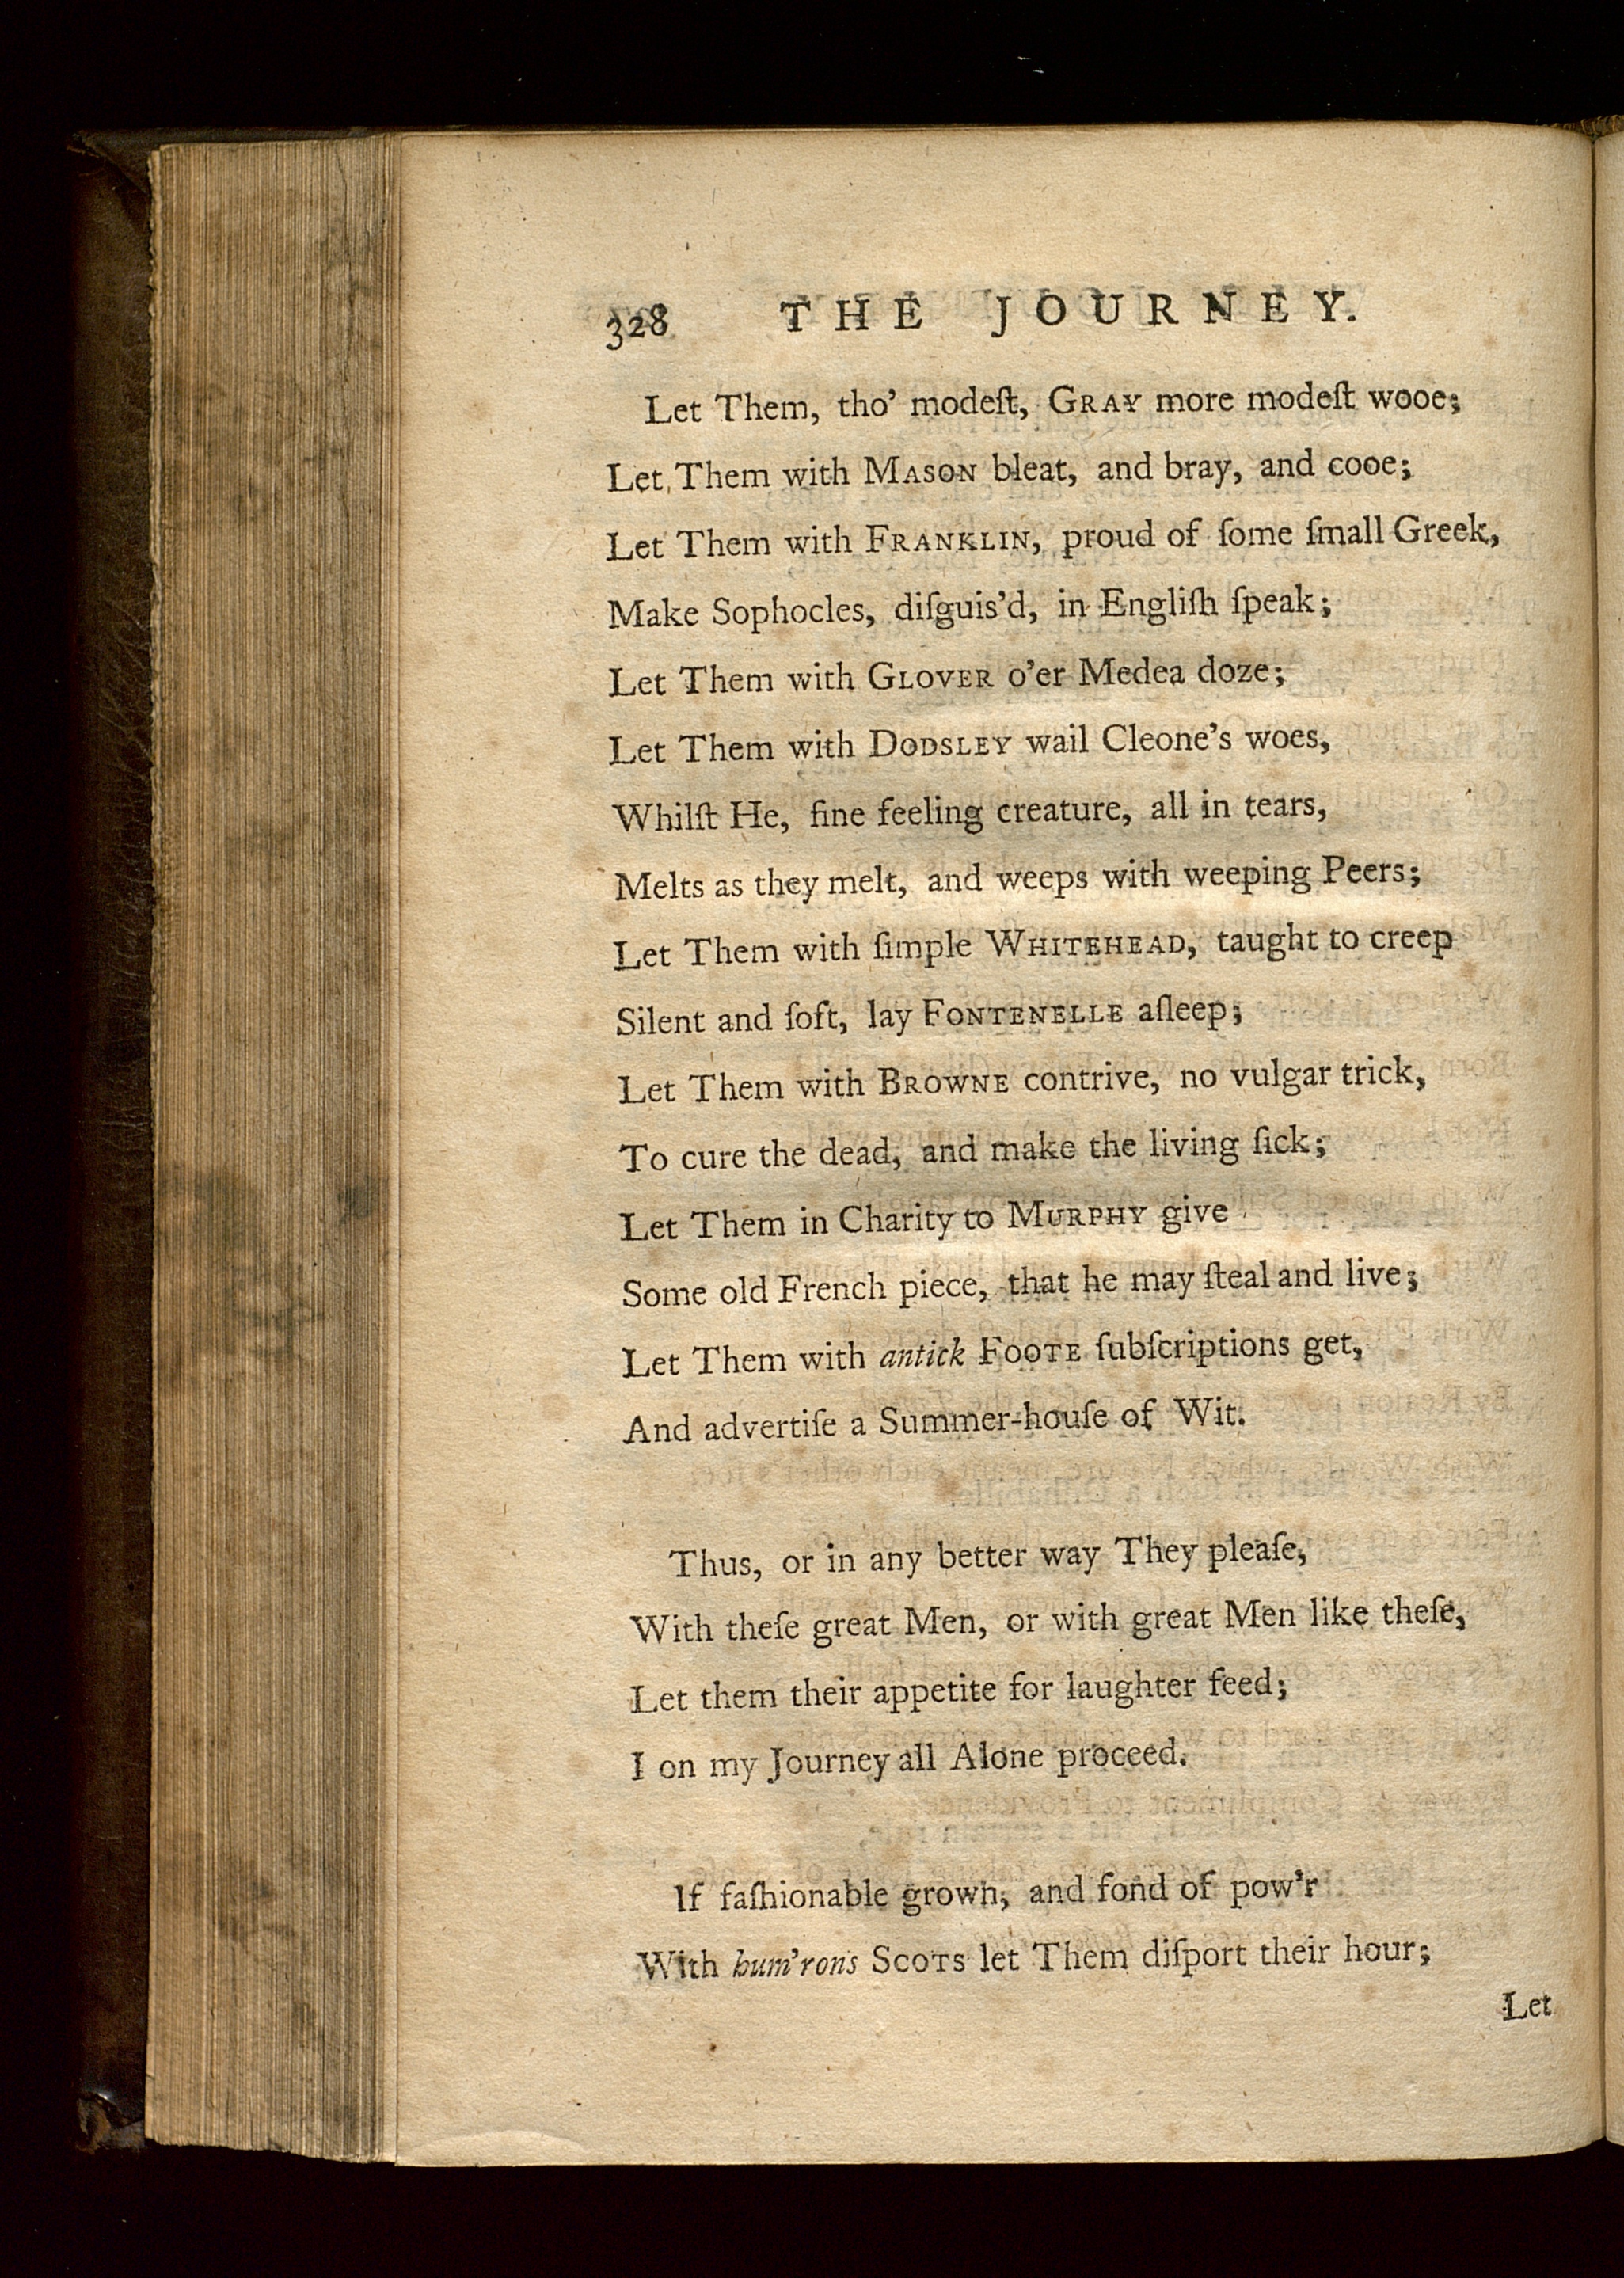 328 THE JOURNEY.
Let Them, tho' modeſt, GRAY more modeſt wooe;
Let Them with MASON bleat, and bray, and cooe;
Let Them with FRANKLIN, proud of ſome ſmall Greek,
Make Sophocles, diſguis'd, in Engliſh ſpeak;
Let Them with GLOVER o'er Medea doze;
Let Them with DODSLEY wail Cleone's woes,
Whilſt He, fine feeling creature, all in tears,
Melts as they melt, and weeps with weeping Peers;
Let Them with ſimple WHITEHEAD, taught to creep
Silent and ſoft, lay FONTENELLE aſleep;
Let Them with BROWNE contrive, no vulgar trick,
To cure the dead, and make the living ſick;
Let Them in Charity to MURPHY give
Some old French piece, that he may ſteal and live;
Let Them with antick FOOTE ſubſcriptions get,
And advertiſe a Summer-houſe of Wit.
Thus, or in any better way They pleaſe,
With theſe great Men, or with great Men like theſe,
Let them their appetite for laughter feed;
I on my Journey all Alone proceed.
If faſhionable grown, and fond of pow'r
With hum'rons SCOTS let Them diſport their hour;
Let